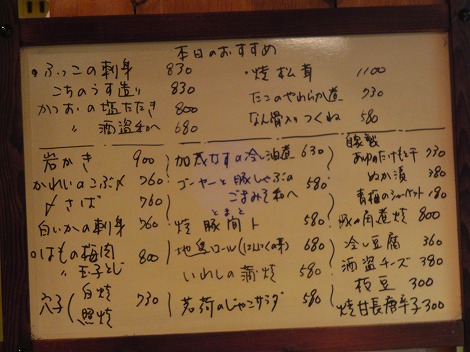 本日のおすすめ
・ふっこの刺身 830
こちのうす造り 830
かつおの塩たたき 800
〃 酒盗和へ 680
・焼松茸 1100
たこのやわらか煮 730
なん骨入りつくね 580
岩かき 900
かれいのこぶ〆 760
〆さば 760
白いかの刺身 760
はもの梅肉 800
〃 玉子とじ
穴子 白焼 730
照焼
加茂なすの冷し 630
ゴーヤーと豚しゃぶの 580
ごまみそ和へ
焼豚トマト 580
地鳥ロール(にんにくの芽) 680
いわしの蒲焼 580
茗荷のじゃこサラダ 580
自家製
730
ぬか漬 380
青梅のシャーベット 180
豚の角煮 800
冷し豆腐 360
酒盗チーズ 380
枝豆 300
焼甘長唐辛子 300